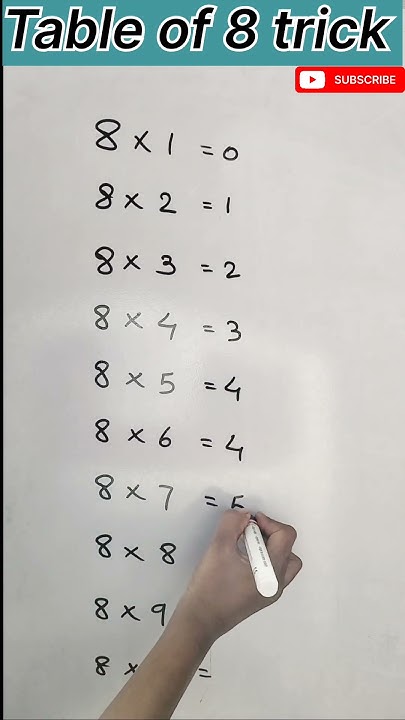 Table of 8 trick
SUBSCRIBE
8 × 1 = 0
8 × 2 = 1
8 × 3 = 2
8 × 4 = 3
8 × 5 = 4
8 × 6 = 4
8 × 7 = 5
8 × 8
8 × 9
8 × =